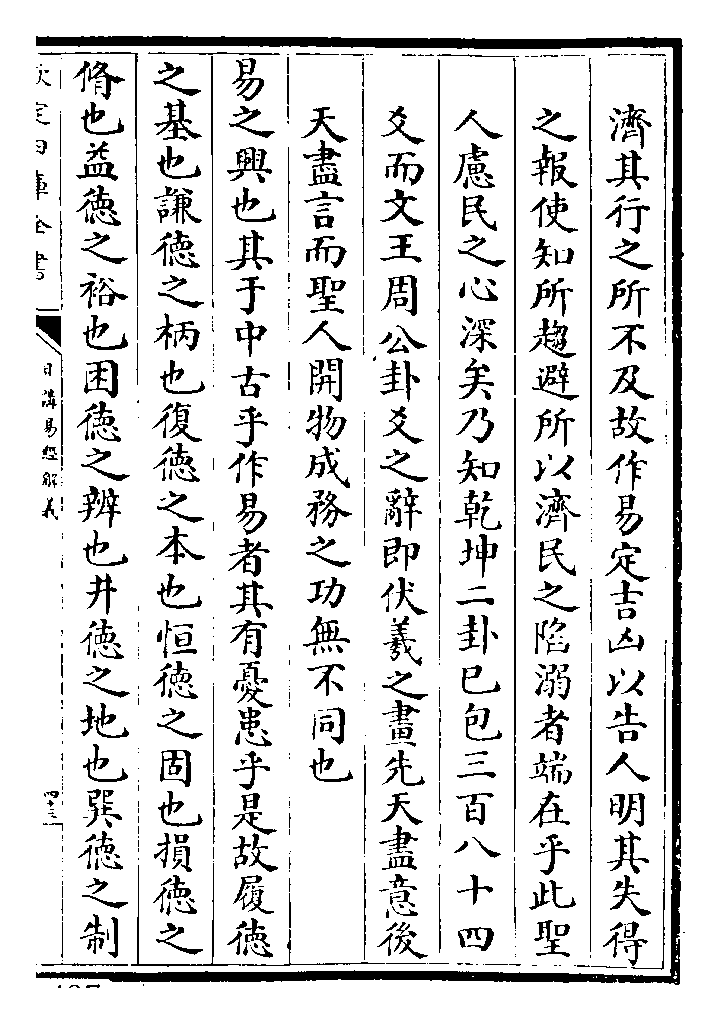 濟其行之所不及故作易定吉凶以告人明其失得
之報使知所趨避所以濟民之陷溺者端在乎此聖
人慮民之心深矣乃知乾坤二卦已包三百八十四
爻而文王周公卦爻之辭即伏羲之畫先天盡意後
天盡言而聖人開物成務之功無不同也
易之興也其于中古乎作易者其有憂患乎是故履德
之基也謙德之柄也復德之本也恒德之固也損德之
脩也益德之裕也困德之辨也井德之地也巽德之制
欽定四庫全書
日講易經解義
四十三